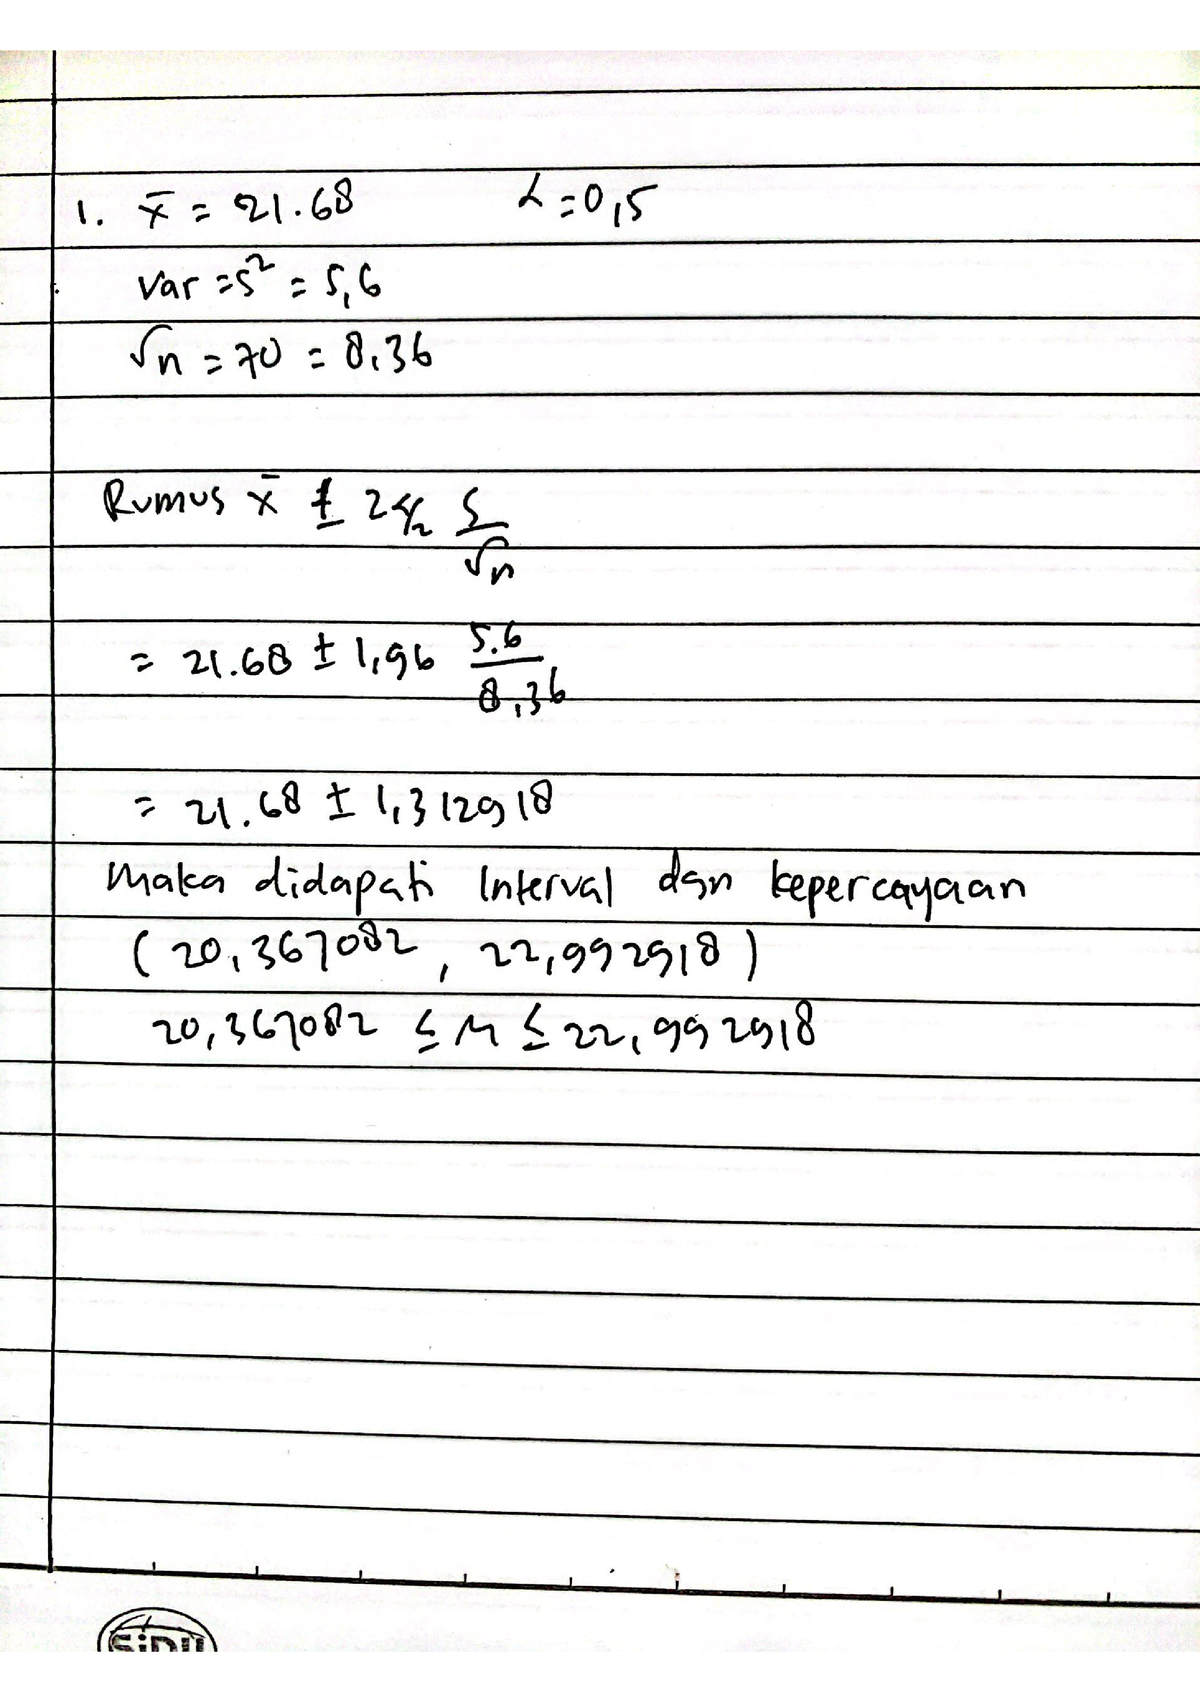 1. x̄ = 21.68 α = 0,5
Var = s² = 5,6
√n = 70 = 8,36
Rumus x̄ ± z α/2 s/√n
= 21.68 ± 1,96 5.6/8,36
= 21.68 ± 1,312918
Maka didapati Interval dan kepercayaan
(20,367082, 22,992918)
20,367082 ≤ μ ≤ 22,992918
SiDU